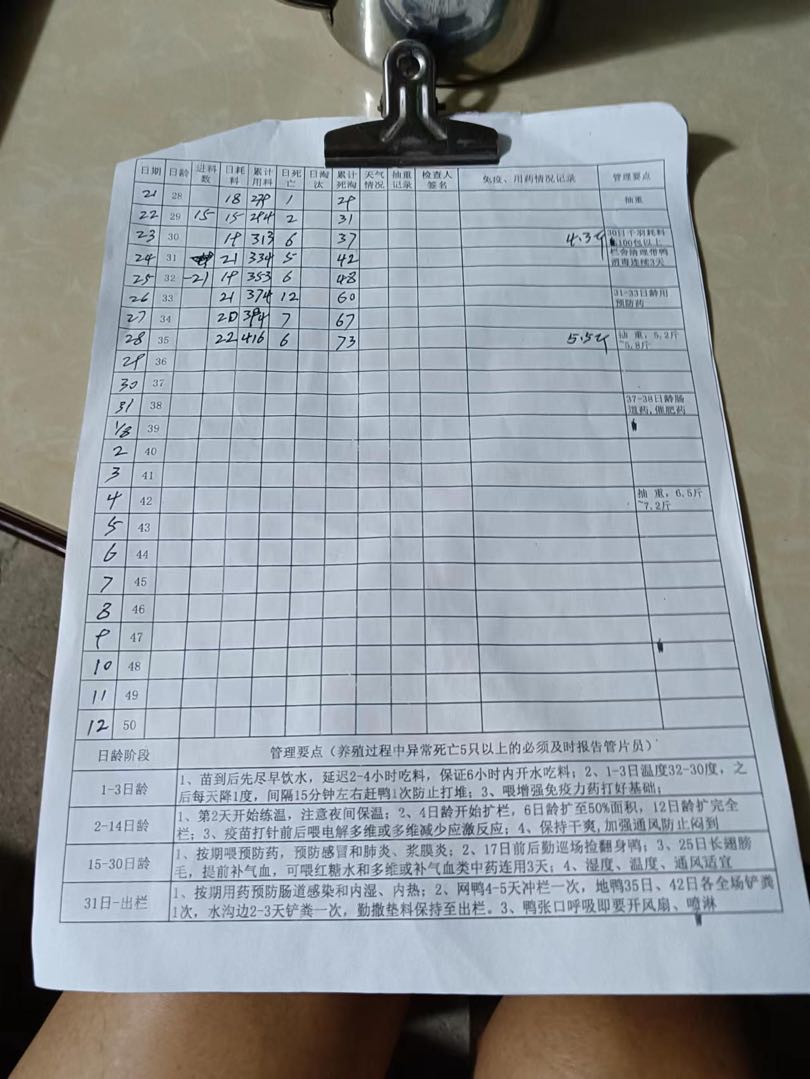 日期 日龄 进料数 日耗料 累计用料 日死亡 日淘汰 累计死淘 天气情况 抽重记录 检查人签名 免疫、用药情况记录 管理要点
21 28 18 279 1 29 抽重
22 29 15 15 294 2 31
23 30 19 313 6 37 4.3斤 30日千羽耗料100包以上
24 31 21 334 5 42 栏舍清理带鸭消毒连续3天
25 32 -21 19 353 6 48
26 33 21 374 12 60 31-33日龄用预防药
27 34 20 394 7 67
28 35 22 416 6 73 5.5斤 抽 重，5.2斤~5.8斤
29 36
30 37
31 38 37-38日龄肠道药，催肥药
1/8 39
2 40
3 41
4 42 抽 重，6.5斤~7.2斤
5 43
6 44
7 45
8 46
9 47
10 48
11 49
12 50
日龄阶段 管理要点（养殖过程中异常死亡5只以上的必须及时报告管片员）
1-3日龄 1、苗到后先尽早饮水，延迟2-4小时吃料，保证6小时内开水吃料；2、1-3日温度32-30度，之
后每天降1度，间隔15分钟左右赶鸭1次防止打堆；3、喂增强免疫力药打好基础；
2-14日龄 1、第2天开始练温，注意夜间保温；2、4日龄开始扩栏，6日龄扩至50%面积，12日龄扩完全
栏；3、疫苗打针前后喂电解多维或多维减少应激反应；4、保持干爽,加强通风防止闷到
15-30日龄 1、按期喂预防药，预防感冒和肺炎、浆膜炎；2、17日前后勤巡场捡翻身鸭；3、25日长翅膀
毛，提前补气血，可喂红糖水和多维或补气血类中药连用3天；4、湿度、温度、通风适宜
31日-出栏 1、按期用药预防肠道感染和内湿、内热；2、网鸭4-5天冲栏一次，地鸭35日、42日各全场铲粪
1次，水沟边2-3天铲粪一次，勤撒垫料保持至出栏。3、鸭张口呼吸即要开风扇、喷淋